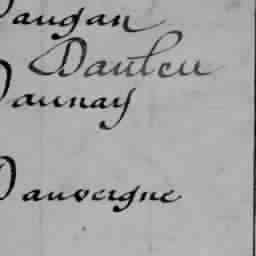 Daugan
Dauleu
Daunay
Dauvergne